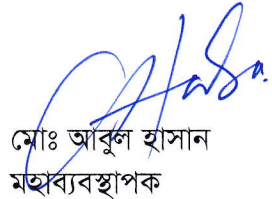 মোঃ আবুল হাসান
মহাব্যবস্থাপক